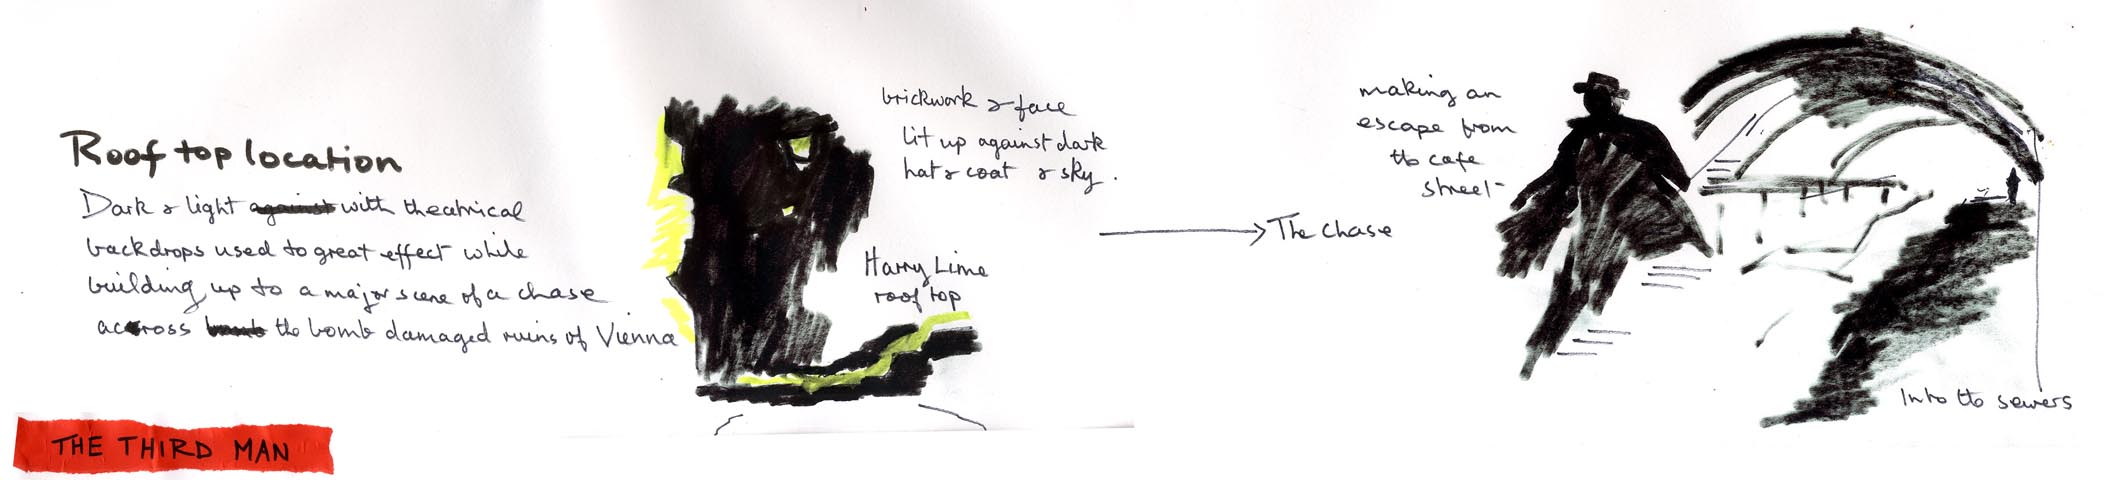 Roof top location
Dark & light against with theatrical
backdrops used to great effect while
building up to a major scene of a chase
across bomb the bomb damaged ruins of Vienna
THE THIRD MAN
brickwork & face
lit up against dark
hat & coat & sky.
Harry Lime
roof top
The chase
making an
escape from
the cafe
street
Into the sewers